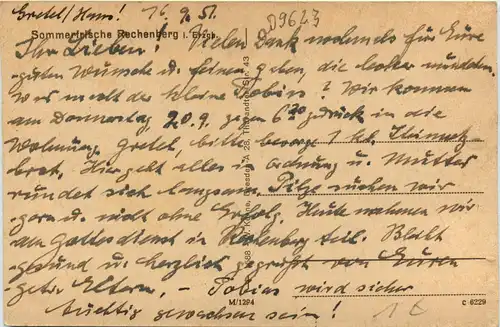 Gretel/Hans! 16.9.51.
D9623
Sommerfrische Rechenberg i. Erzgb.
Ihr Lieben! Vielen Dank nochmals für Eure
guten Wünsche u. feinen gaben, die lecker munden.
Was macht der kleine Tobias? Wir kommen
am Donnerstag, 20.9. gegen 6 30 zurück in die
Wohnung. Gretel, bitte besorge 1 kl.
brot. Hier geht alles in Ordnung u. Mutter
rundet sich langsam. Pilze suchen wir
gern u. nicht ohne Erfolg. Heute nahmen wir
am Gottesdienst in Rechenberg teil. Bleibt
gesund u. herzlich gegrüßt von Euren
getr. Eltern. – Tobias wird sicher
tüchtig gewachsen sein!
M/1294
C 6229
1€